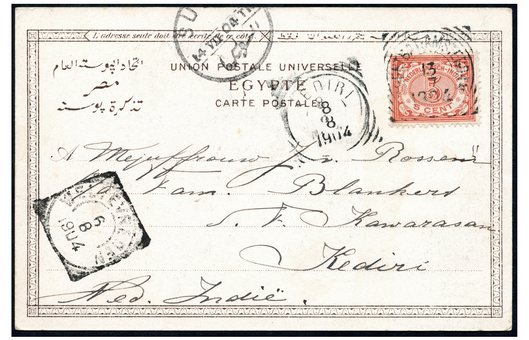 L'adresse seule doit
SU
14 VII 04
UNION POSTALE UNIVERSELLE
اتحاد البوستة العام
EGYPTE
مصر
CARTE POSTALE
تذكرة بوستة
KEDIRI
8
8
1904
13
7
5 CENT
A Mejuffrouw J. v. Rossem
d/a Fam. Blankers
s. F. Kawarasan
Kediri
Ned. Indië.
WELTEVREDEN
6
8
1904